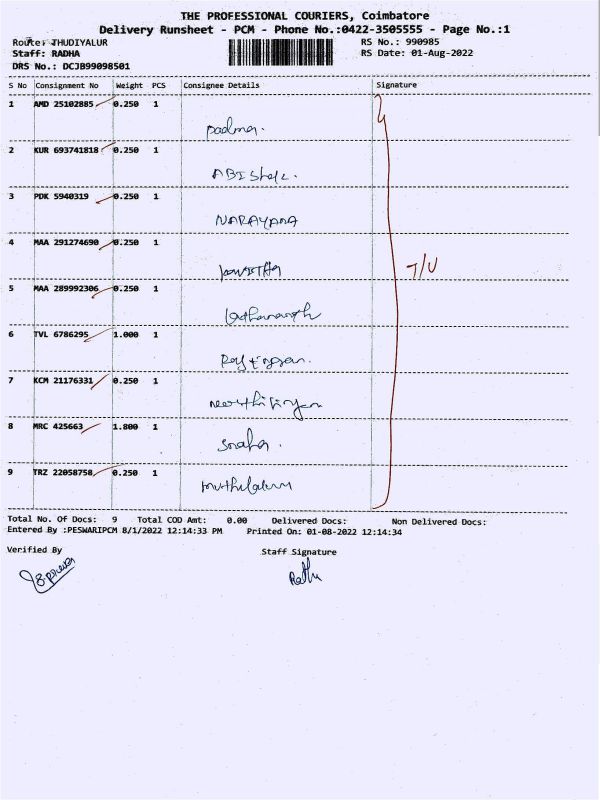 THE PROFESSIONAL COURIERS, Coimbatore
Delivery Runsheet - PCM - Phone No.:0422-3505555 - Page No.:1
Route: THUDIYALUR
RS No.: 990985
Staff: RADHA
RS Date: 01-Aug-2022
DRS No.: DCJB99098501
S No Consignment No Weight PCS Consignee Details Signature
1 AMD 25102885 0.250 1
Padma.
2 KUR 693741818 0.250 1
ABIShek.
3 PDK 5940319 0.250 1
NARAYANA
4 MAA 291274690 0.250 1
T/U
5 MAA 289992306 0.250 1
6 TVL 6786295 1.000 1
7 KCM 21176331 0.250 1
8 MRC 425663 1.800 1
Sneha.
9 TRZ 22058758 0.250 1
Total No. Of Docs: 9 Total COD Amt: 0.00 Delivered Docs: Non Delivered Docs:
Entered By :PESWARIPCM 8/1/2022 12:14:33 PM Printed On: 01-08-2022 12:14:34
Verified By Staff Signature